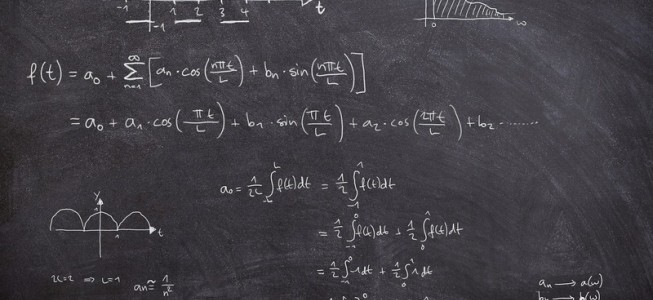 -1 1 2 3 4 t
-1
0 ω
f(t) = a₀ + ∑ₙ₌₁^∞ [aₙ·cos(nπt/L) + bₙ·sin(nπt/L)]
= a₀ + a₁·cos(πt/L) + b₁·sin(πt/L) + a₂·cos(2πt/L) + b₂.........
a₀ = 1/2L ∫₋L^L f(t)dt = 1/2 ∫₋₁^1 f(t)dt
y
= 1/2 ∫₋₁^0 f(t)dt + 1/2 ∫₀^1 f(t)dt
1 t
2L=2 ⇒ L=1 aₙ≅ 1/n²
= 1/2 ∫₋₁^0 -1dt + 1/2 ∫₀^1 1dt
aₙ → a(ω)
bₙ → b(ω)